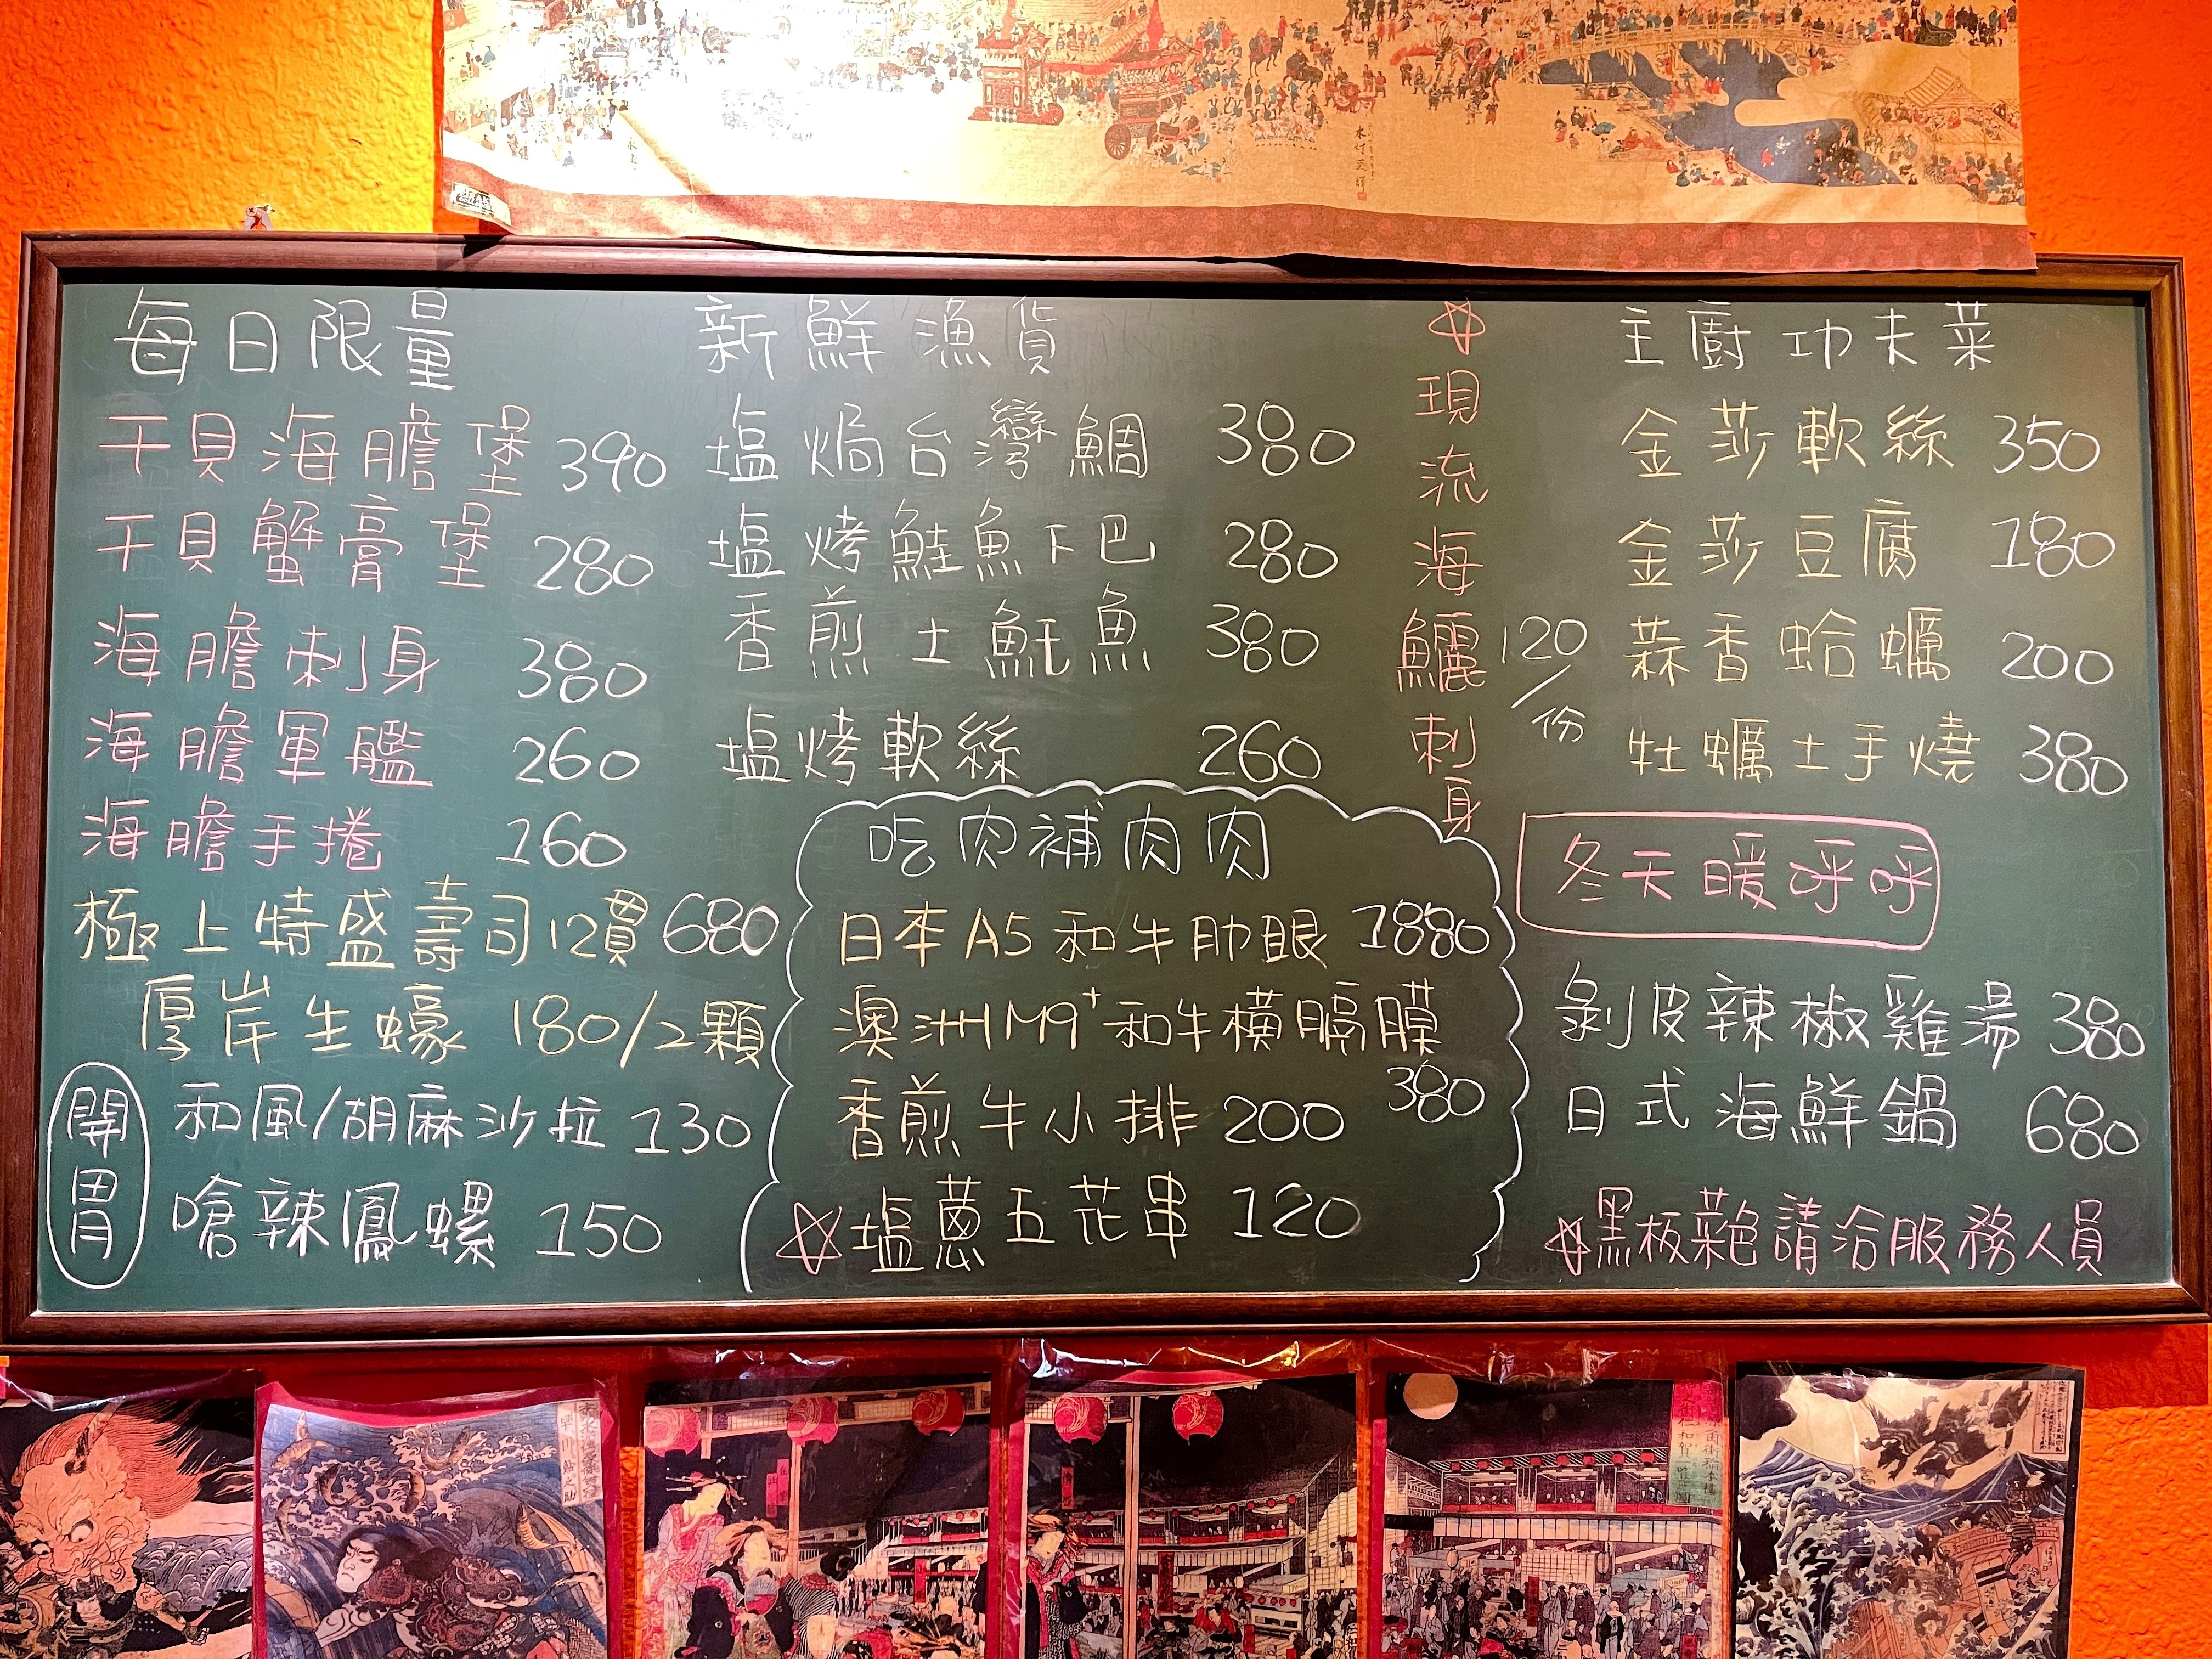 每日限量
干貝海膽堡 390
干貝蟹膏堡 280
海膽刺身 380
海膽軍艦 260
海膽手捲 160
極上特盛壽司12貫 680
厚岸生蠔 180/2顆
開胃
和風/胡麻沙拉 130
嗆辣鳳螺 150
新鮮漁貨
塩焗台灣鯛 380
塩烤鮭魚下巴 280
香煎土魠魚 380
塩烤軟絲 260
吃肉補肉肉
日本A5和牛肋眼 1880
澳洲M9+和牛橫膈膜 380
香煎牛小排 200
☆塩蔥五花串 120
☆現流海鱺刺身 120/份
主廚功夫菜
金莎軟絲 350
金莎豆腐 180
蒜香蛤蠣 200
牡蠣土手燒 380
冬天暖呼呼
剝皮辣椒雞湯 380
日式海鮮鍋 680
☆黑板菜色請洽服務人員